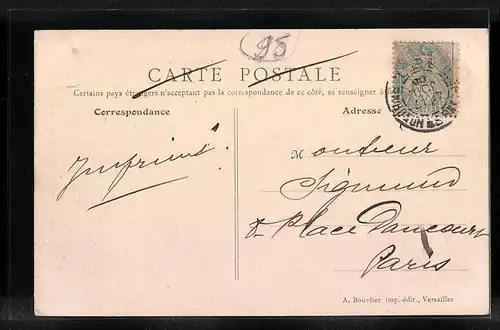 95
CARTE POSTALE
Certains pays étrangers n'acceptant pas la correspondance de ce côté, se renseigner à
Correspondance
Adresse
Imprimé
Monsieur
Sigmund
8 Place Dancourt
Paris
A. Bourdier imp.-édit., Versailles